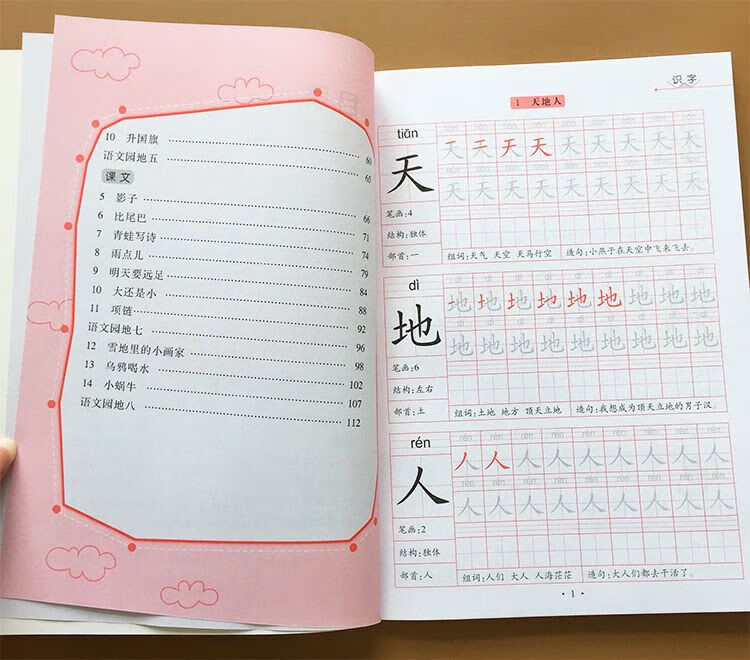 10 升国旗 60
语文园地五 65
课文
5 影子 66
6 比尾巴 71
7 青蛙写诗 74
8 雨点儿 79
9 明天要远足 84
10 大还是小 88
11 项链 92
语文园地七 96
12 雪地里的小画家 98
13 乌鸦喝水 102
14 小蜗牛 107
语文园地八 112
识字
1 天地人
tiān
天
笔画:4
结构:独体
部首:一 组词:天气 天空 天马行空 造句:小燕子在天空中飞来飞去。
dì
地
笔画:6
结构:左右
部首:土 组词:土地 地方 顶天立地 造句:我想成为顶天立地的男子汉。
rén
人
笔画:2
结构:独体
部首:人 组词:人们 大人 人海茫茫 造句:大人们都去干活了。
· 1 ·